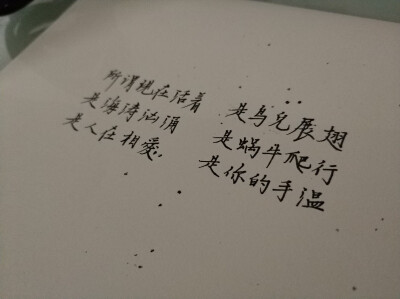 所谓现在活着
是海涛汹涌
是人在相愛.
是鸟兒展翅
是蜗牛爬行
是你的手温